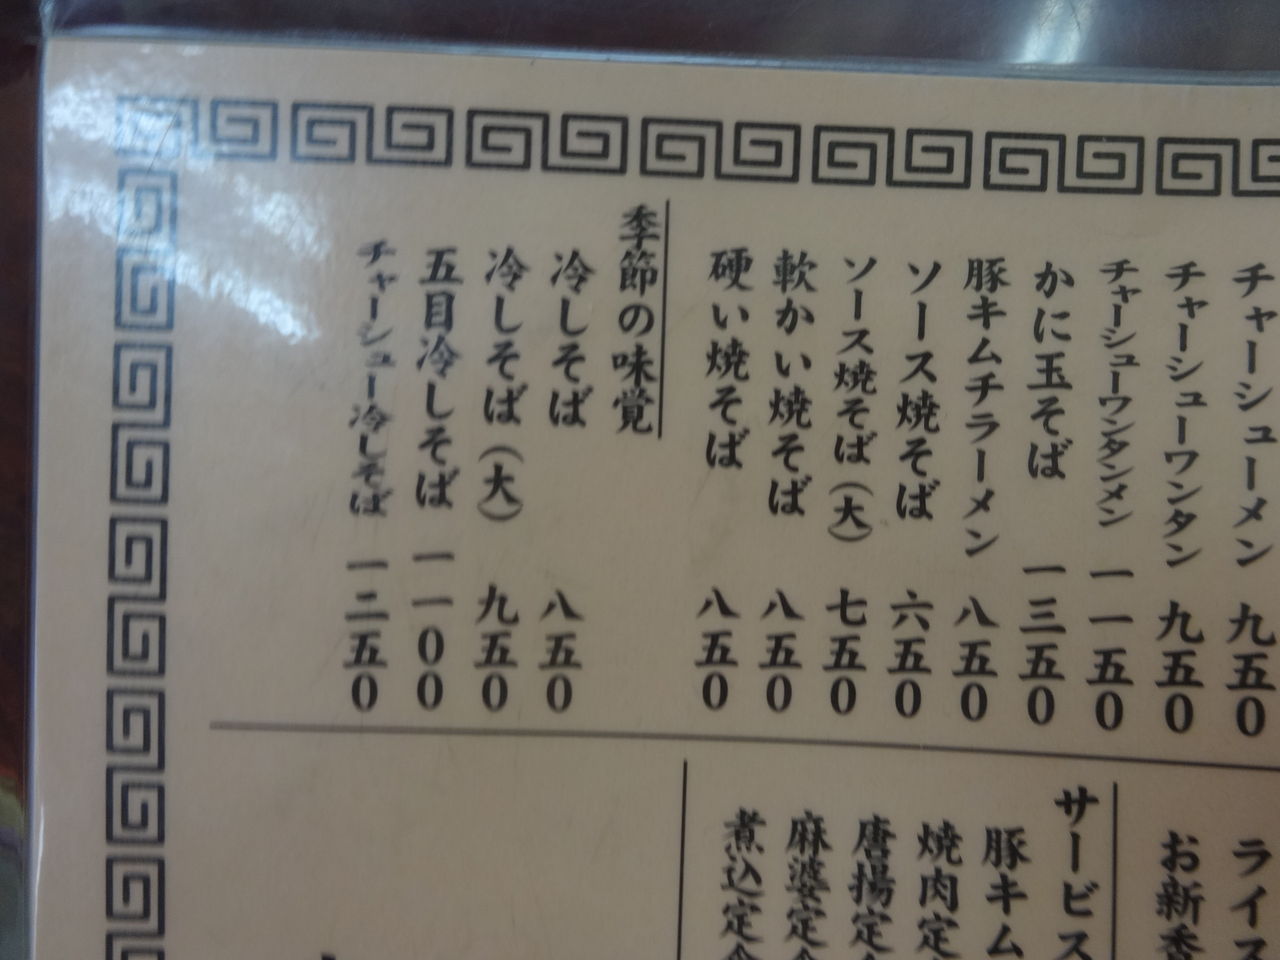 チャーシューメン 九五0
チャーシューワンタン 九五0
チャーシューワンタンメン 一一五0
かに玉そば 一三五0
豚キムチラーメン 八五0
ソース焼そば 六五0
ソース焼そば(大) 七五0
軟かい焼そば 八五0
硬い焼そば 八五0
季節の味覚
冷しそば 八五0
冷しそば(大) 九五0
五目冷しそば 一一00
チャーシュー冷しそば 一二五0
ライス
お新香
サービス
豚キム
焼肉定
唐揚定
麻婆定
煮込定